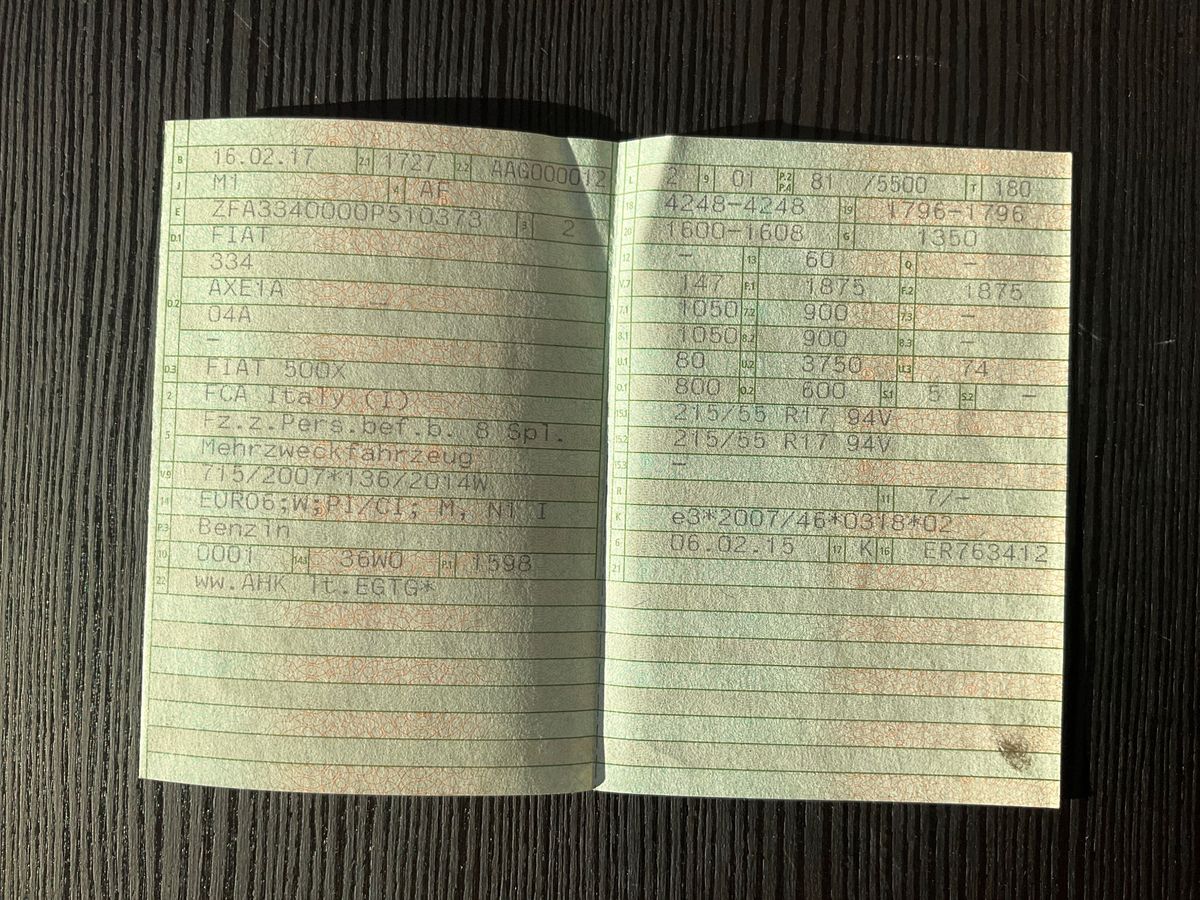 B 16.02.17 2.1 1727 2.2 AAG000012
J M1 4 AF
E ZFA3340000P510373 3 2
D.1 FIAT
334
D.2 AXE1A
04A
–
D.3 FIAT 500X
2 FCA Italy (I)
5 Fz.z.Pers.bef.b. 8 Spl.
Mehrzweckfahrzeug
V.9 715/2007*136/2014W
14 EURO6;W;PI/CI; M, N1 I
P.3 Benzin
10 0001 14.1 36W0 P.1 1598
22 ww.AHK lt.EGTG*
L 2 9 01 P.2 P.4 81 /5500 T 180
18 4248-4248 19 1796-1796
20 1600-1608 G 1350
12 – 13 60 Q –
V.7 147 F.1 1875 F.2 1875
7.1 1050 7.2 900 7.3 –
8.1 1050 8.2 900 8.3 –
U.1 80 U.2 3750 U.3 74
O.1 800 O.2 600 S.1 5 S.2 –
15.1 215/55 R17 94V
15.2 215/55 R17 94V
15.3 –
R 11 7/-
K e3*2007/46*0318*02
6 06.02.15 17 K 16 ER763412
21